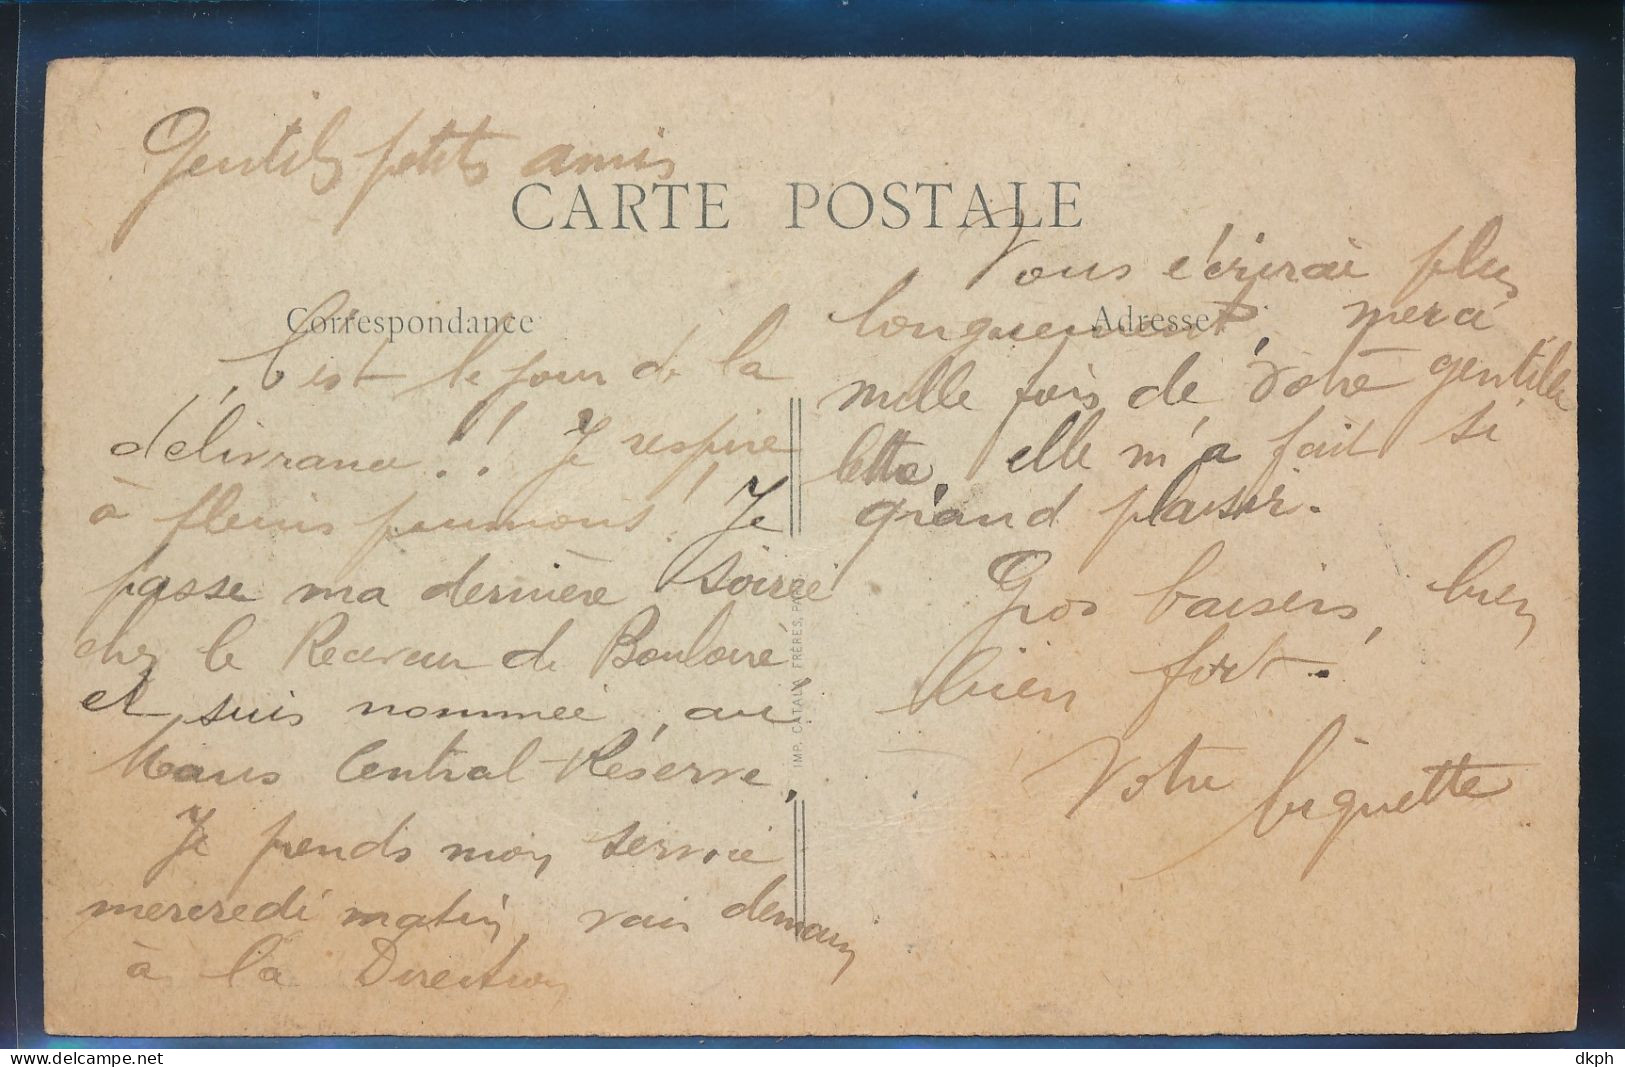 Gentils petits amis
CARTE POSTALE
Correspondance
C'est le jour de la
délivrance !! Je respire
à pleins poumons ! Je
passe ma dernière soirée
chez le Receveur de Bouloire
et suis nommée au
Mans Central-Réserve,
Je prends mon service
mercredi matin, vais demain
à la Direction
IMP. CATALA FRÈRES, PARIS
Adresse
Vous écrirai plus
longuement, merci
mille fois de votre gentille
lettre, elle m'a fait si
grand plaisir.
Gros baisers, bien
bien fort.
Votre biquette
dkph
delcampe.net